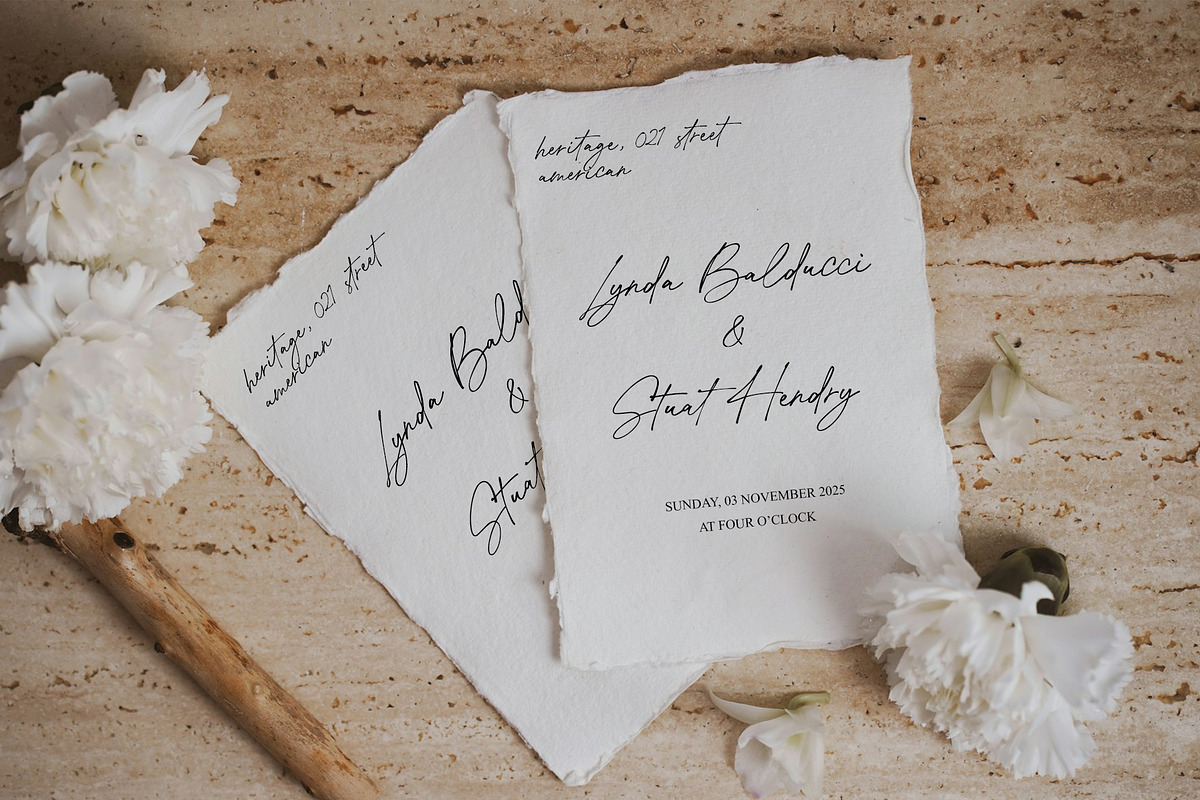 heritage, 021 street
american
Lynda Balducci
&
Stuat Hendry
SUNDAY, 03 NOVEMBER 2025
AT FOUR O’CLOCK
heritage, 021 street
american
Lynda Bald
&
Stuat